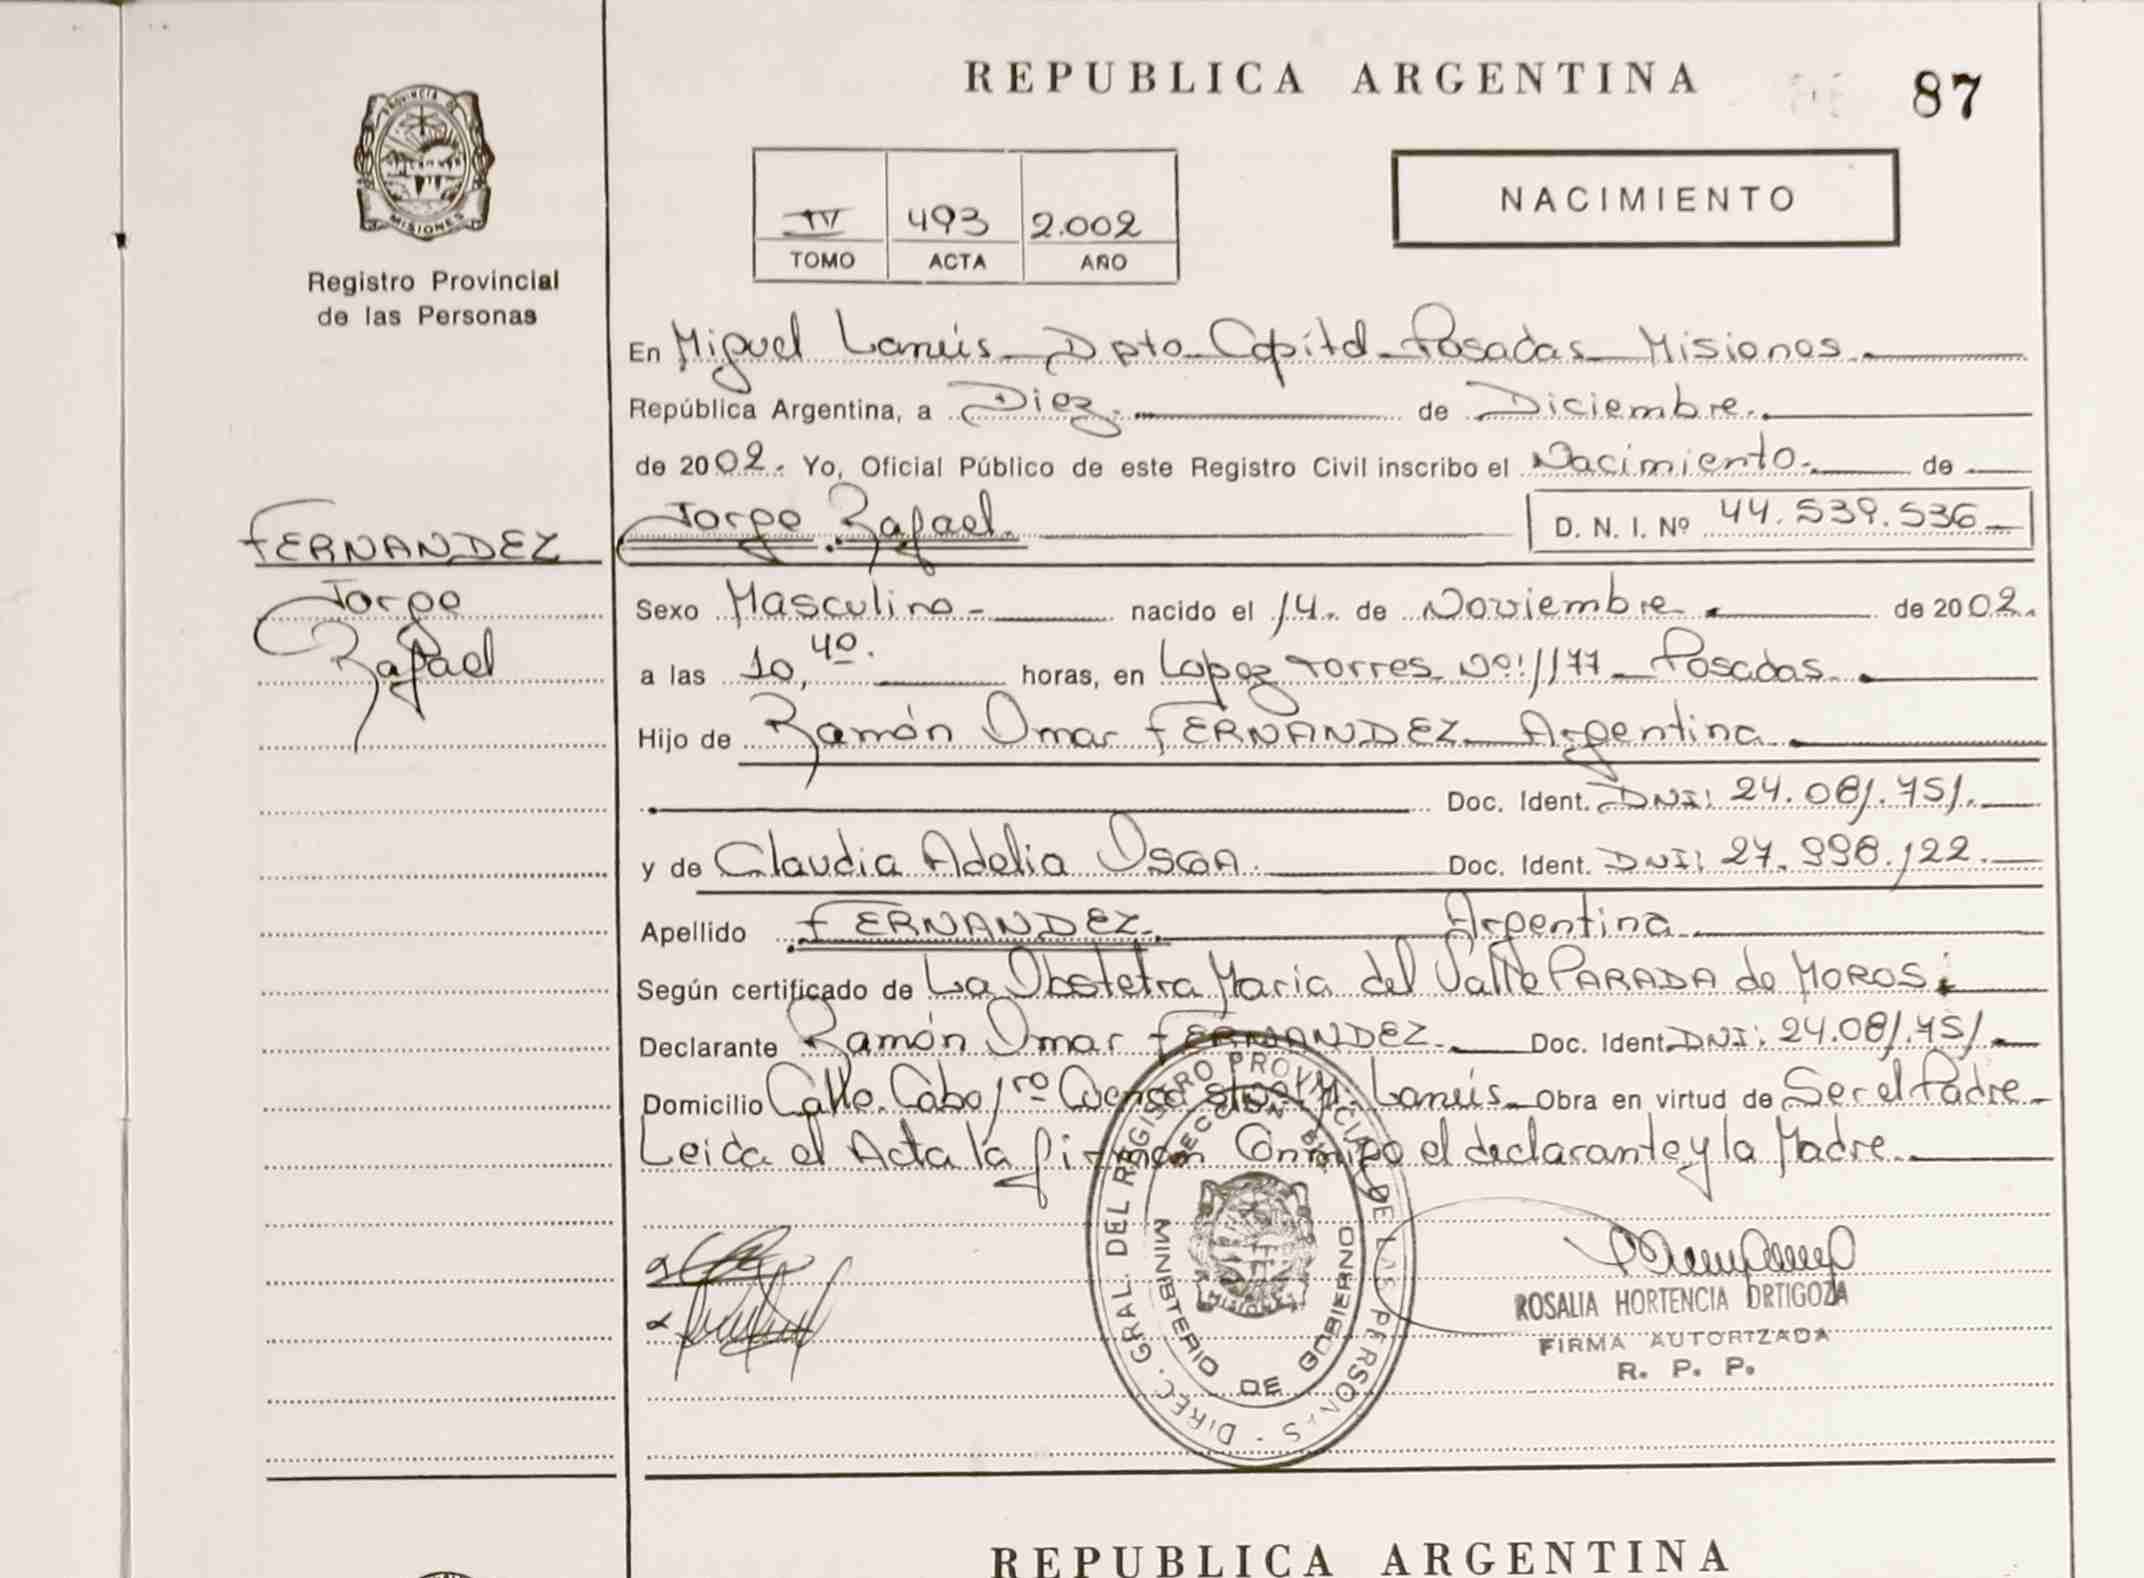 REPUBLICA ARGENTINA
87
PROVINCIA DE
MISIONES
Registro Provincial
de las Personas
IV 493 2.002
TOMO ACTA AÑO
NACIMIENTO
En Miguel Lanús Dpto Capital Posadas Misiones.
República Argentina, a Diez. de Diciembre.
de 2002. Yo, Oficial Público de este Registro Civil inscribo el Nacimiento. de
Jorge Rafael. D. N. I. Nº 44.539.536
FERNANDEZ
Jorge
Rafael
Sexo Masculino nacido el 14. de Noviembre de 2002.
a las 10,40. horas, en Lopez Torres Nº: 1177 Posadas.
Hijo de Ramón Omar FERNANDEZ Argentina
Doc. Ident. DNI: 24.081.751.
y de Claudia Adelia Doc. Ident. DNI: 27.998.122.
Apellido FERNANDEZ. Argentina
Según certificado de La Obstetra Maria del Valle PARADA de MOROS.
Declarante Ramón Omar FERNANDEZ. Doc. Ident. DNI: 24.081.751
Domicilio Calle. Cabo 1ro Lanús. Obra en virtud de Ser el Padre
Leida el Acta la firman Conmigo el declarante y la Madre
DIREC. GRAL. DEL REGISTRO PROVINCIAL DE LAS PERSONAS
MINISTERIO DE GOBIERNO
MISIONES
ROSALIA HORTENCIA ORTIGOZA
FIRMA AUTORIZADA
R. P. P.
REPUBLICA ARGENTINA